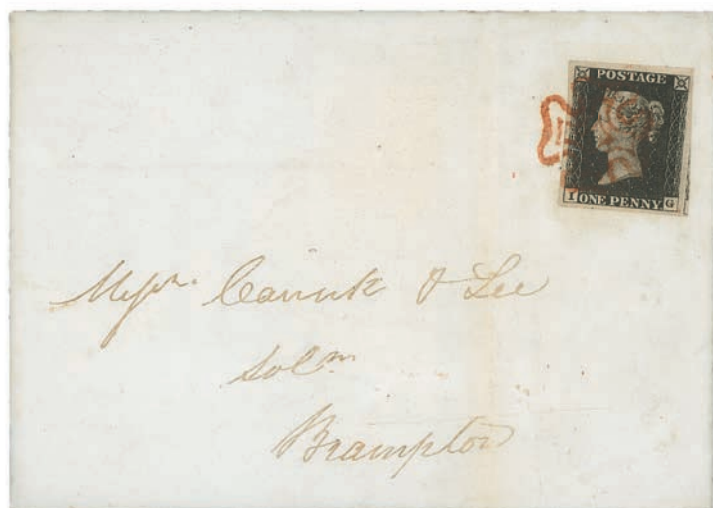 POSTAGE
I ONE PENNY G
Messrs. Carrick & Lee
Solrs
Brampton